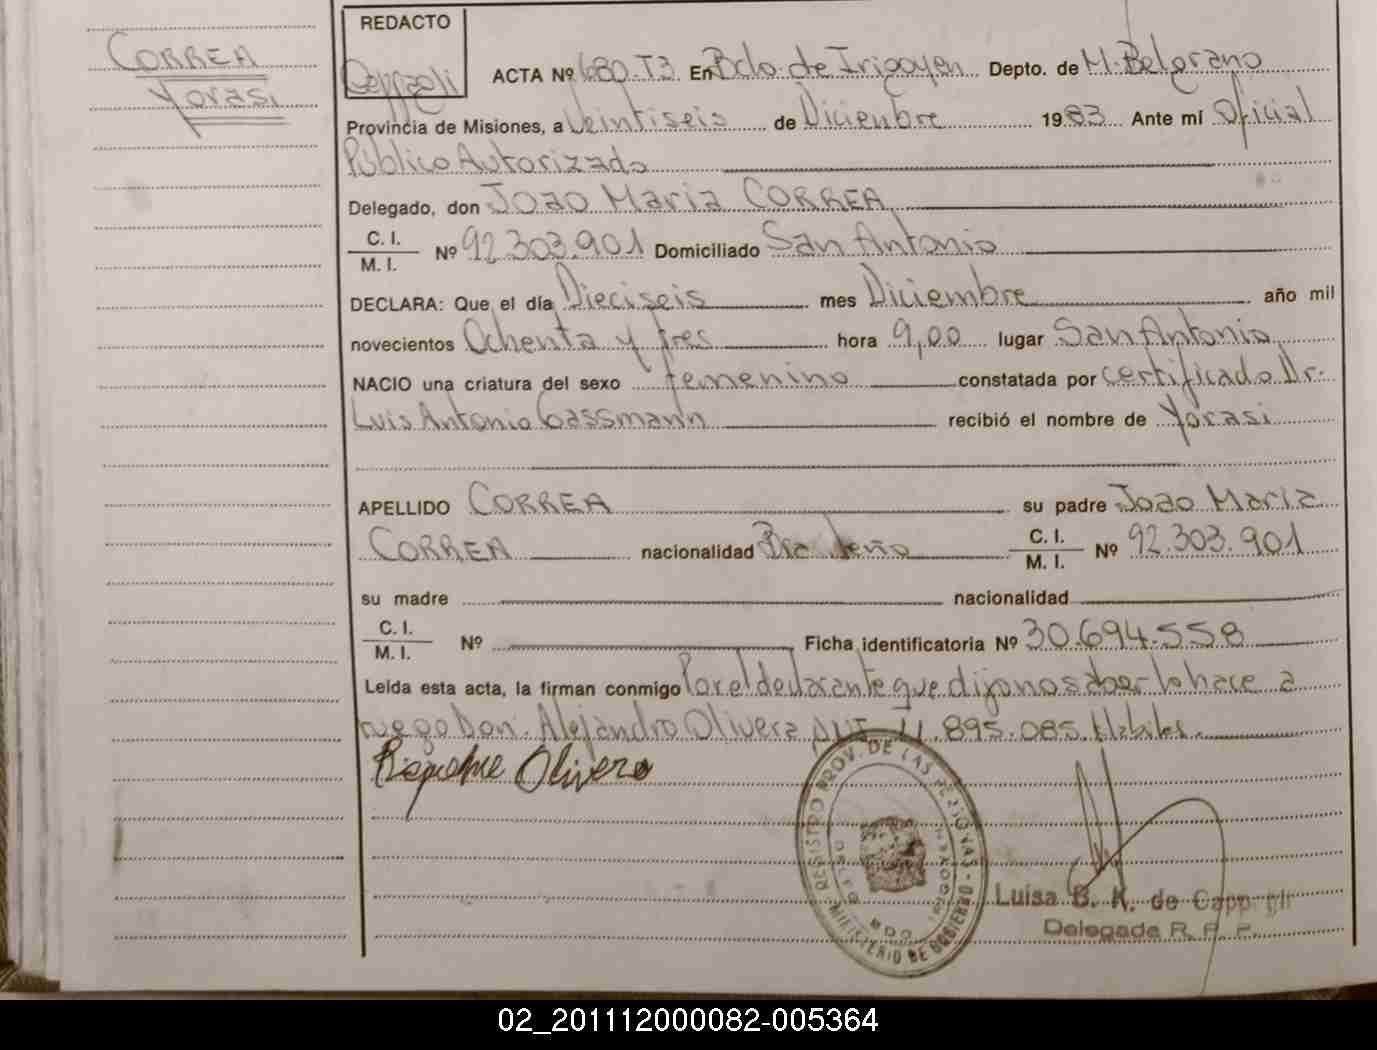 CORREA
Yorasi
REDACTO
ACTA Nº 680.T3 En Bdo. de Irigoyen Depto. de M. Belgrano
Provincia de Misiones, a Veintiseis de Diciembre 1983 Ante mí Oficial
Público Autorizado
Delegado, don Joao Maria CORREA
C. I.
M. I.
Nº 92.303.901 Domiciliado San Antonio
DECLARA: Que el día Dieciseis mes Diciembre año mil
novecientos Ochenta y tres hora 9,00 lugar San Antonio
NACIO una criatura del sexo femenino constatada por certificado Dr.
Luis Antonio Gassmann recibió el nombre de Yorasi
APELLIDO CORREA su padre Joao Maria
CORREA nacionalidad C. I.
M. I.
Nº 92.303.901
su madre nacionalidad
C. I.
M. I.
Nº Ficha identificatoria Nº 30.694.558
Leída esta acta, la firman conmigo Por el declarante que dijo no saber lo hace a
ruego Don. Alejandro Olivera DNI 11.895.085. Habiles.
Olivero
REGISTRO PROV. DE LAS PERSONAS - MINISTERIO DE GOBIERNO -
Luisa B. K. de
Delegada R. P. P.
02_201112000082-005364